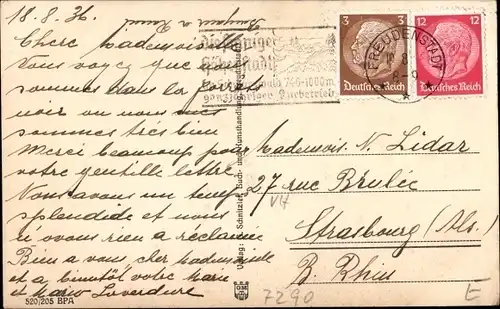 18.8.36.
Chere Mademoiselle
Vous voyez que nous
sommes dans la forêt
noir ou nous nous
sommes tres bien
Merci beaucoup pour
votre gentille lettre
Nous avons un temp
splendide et nous
n'avons rien a réclamer
Bien a vous cher Mademoiselle
et a bientôt votre Marie
et Mario Laverdure
520/205 BPA
740-1000m
ganzjähriger Kurbetrieb
3 3
Deutsches Reich
12 12
Deutsches Reich
FREUDENSTADT
8-9
Mademois. N. Lidar
27 rue Brûlée
VH
Strasbourg (Als.)
B. Rhin
7290
E